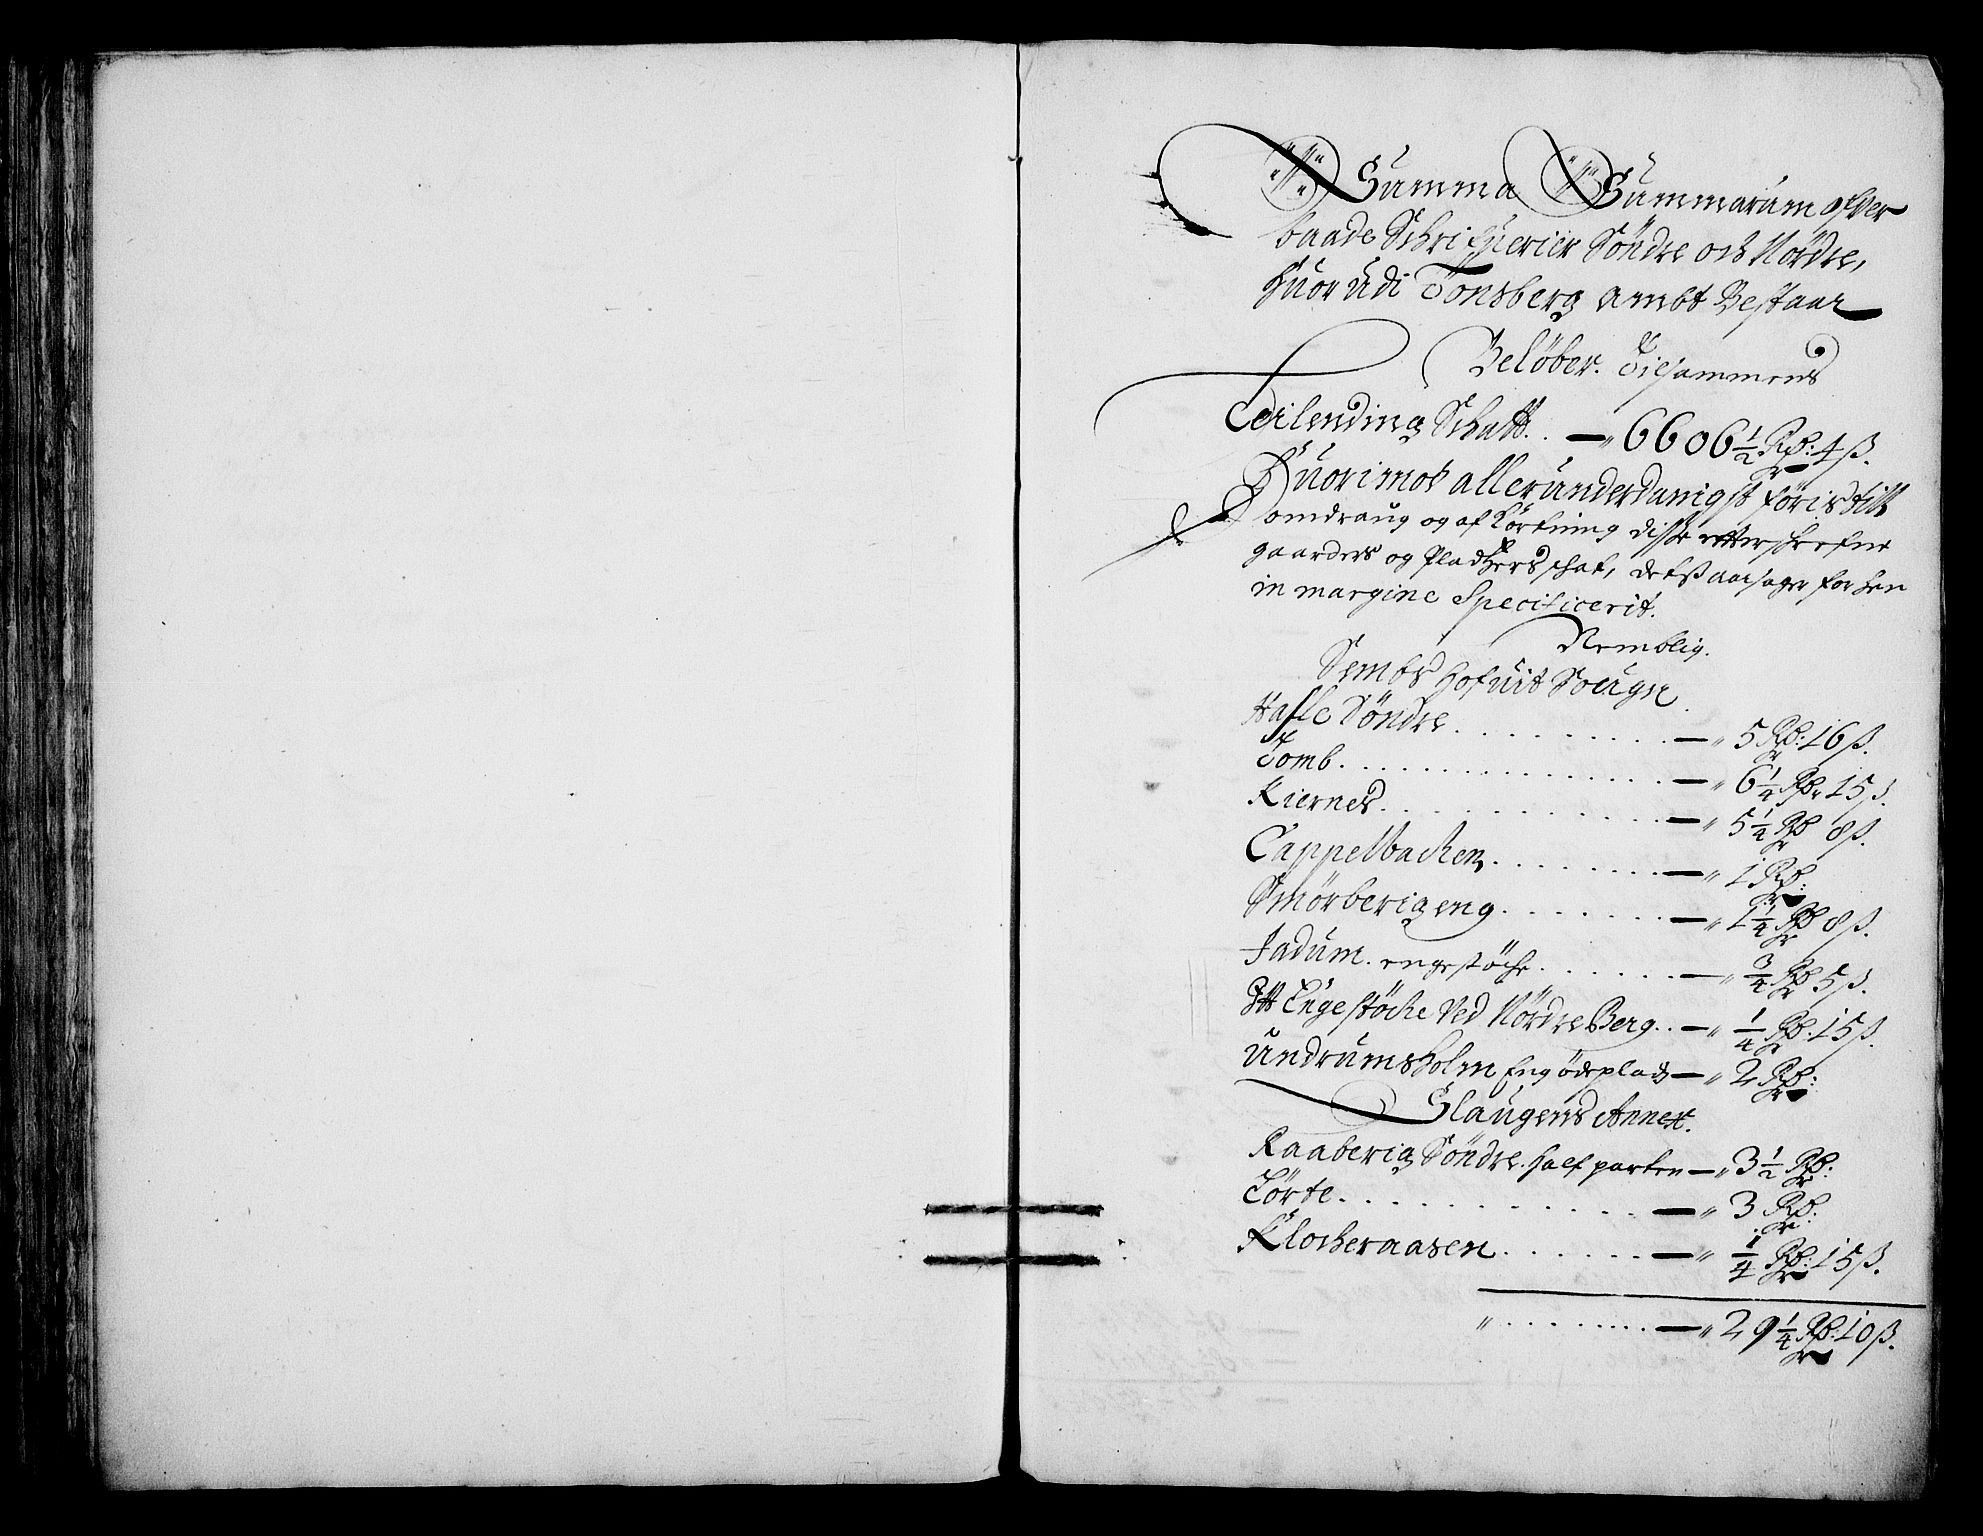 Summa Summarum ofver
baade Schrifuerier Söndre och Nördre,
huorudi Tonsberg ambt Bestaar
Belöber. Tilsammens
Penge Schatt. . — „ 6606 1/2 Rd: 4 ß.
Huorimod allerunderdanigst föris till
omdraug og afKortning disse efterschrefne
gaarders og Pladtzers schat, dets aarsager for hen
in margine Specificerit.
Nemblig.
Sembs Hofuit Sougn
Hasle Söndre . . . . . . . . . . — „ 5 Rd: 16 ß.
Tomb. . . . . . . . . . . . . . . . — „ 6 1/4 Rd: 15 ß.
Kiernes. . . . . . . . . . . . . . — „ 5 1/4 Rd 8 ß.
Cappelbachen. . . . . . . . — „ 1 Rd:
Smörberigeng. . . . . . . . — „ 1 1/4 Rd 8 ß.
Jadum. engestöche. . . . . . — „ 3/4 Rd 5 ß.
Itt Engestöche ved Nördre Berg. . — „ 1/4 Rd: 15 ß.
Undrumsholm Eng ödeplads — „ 2 Rd:
Slaugens Annex.
Raaberig Söndre. half parten — „ 3 1/2 Rd:
Törte. . . . . . . . . . . . . — „ 3 Rd:
Klocheraasen. . . . . . . — „ 1/4 Rd: 15 ß.
„ . . . . . . . . . — „ 29 1/4 Rd: 10 ß.